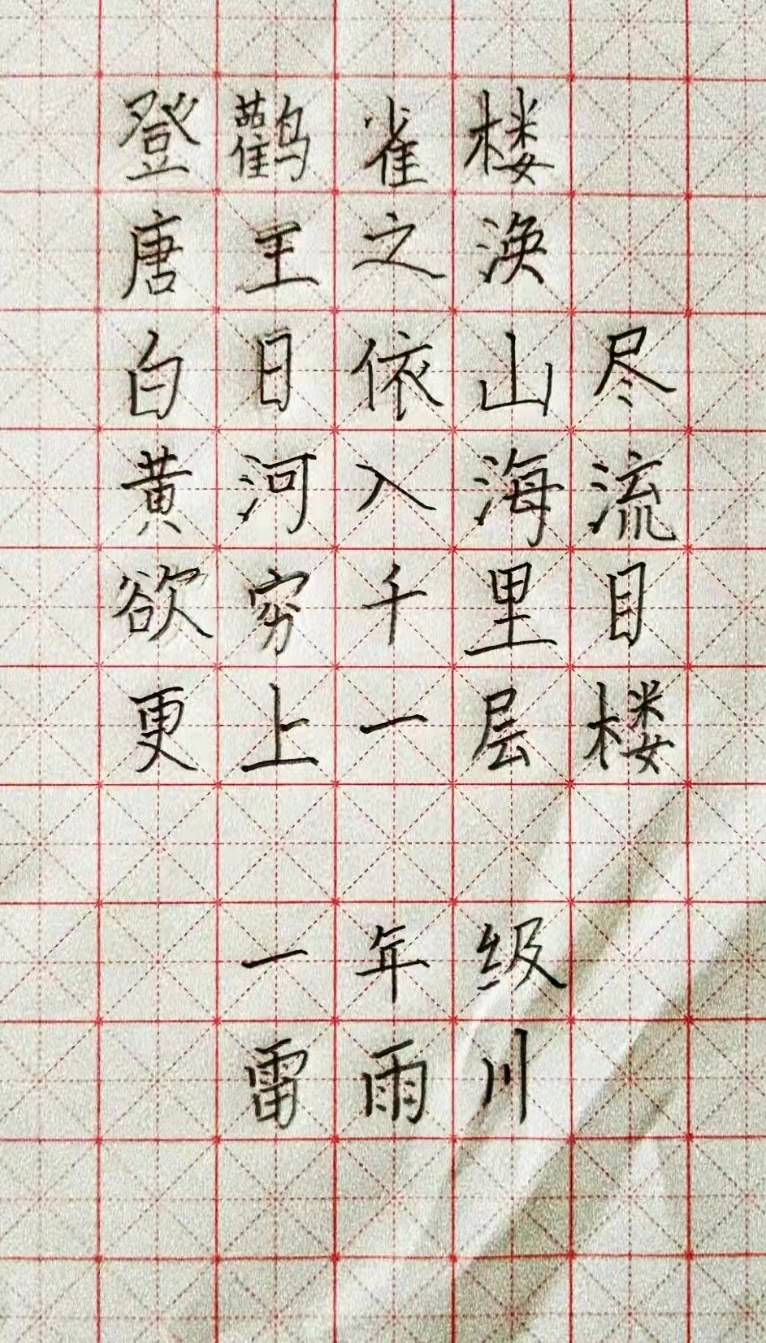 登鹳雀楼
唐王之涣
白日依山尽
黄河入海流
欲穷千里目
更上一层楼
一年级
雷雨川